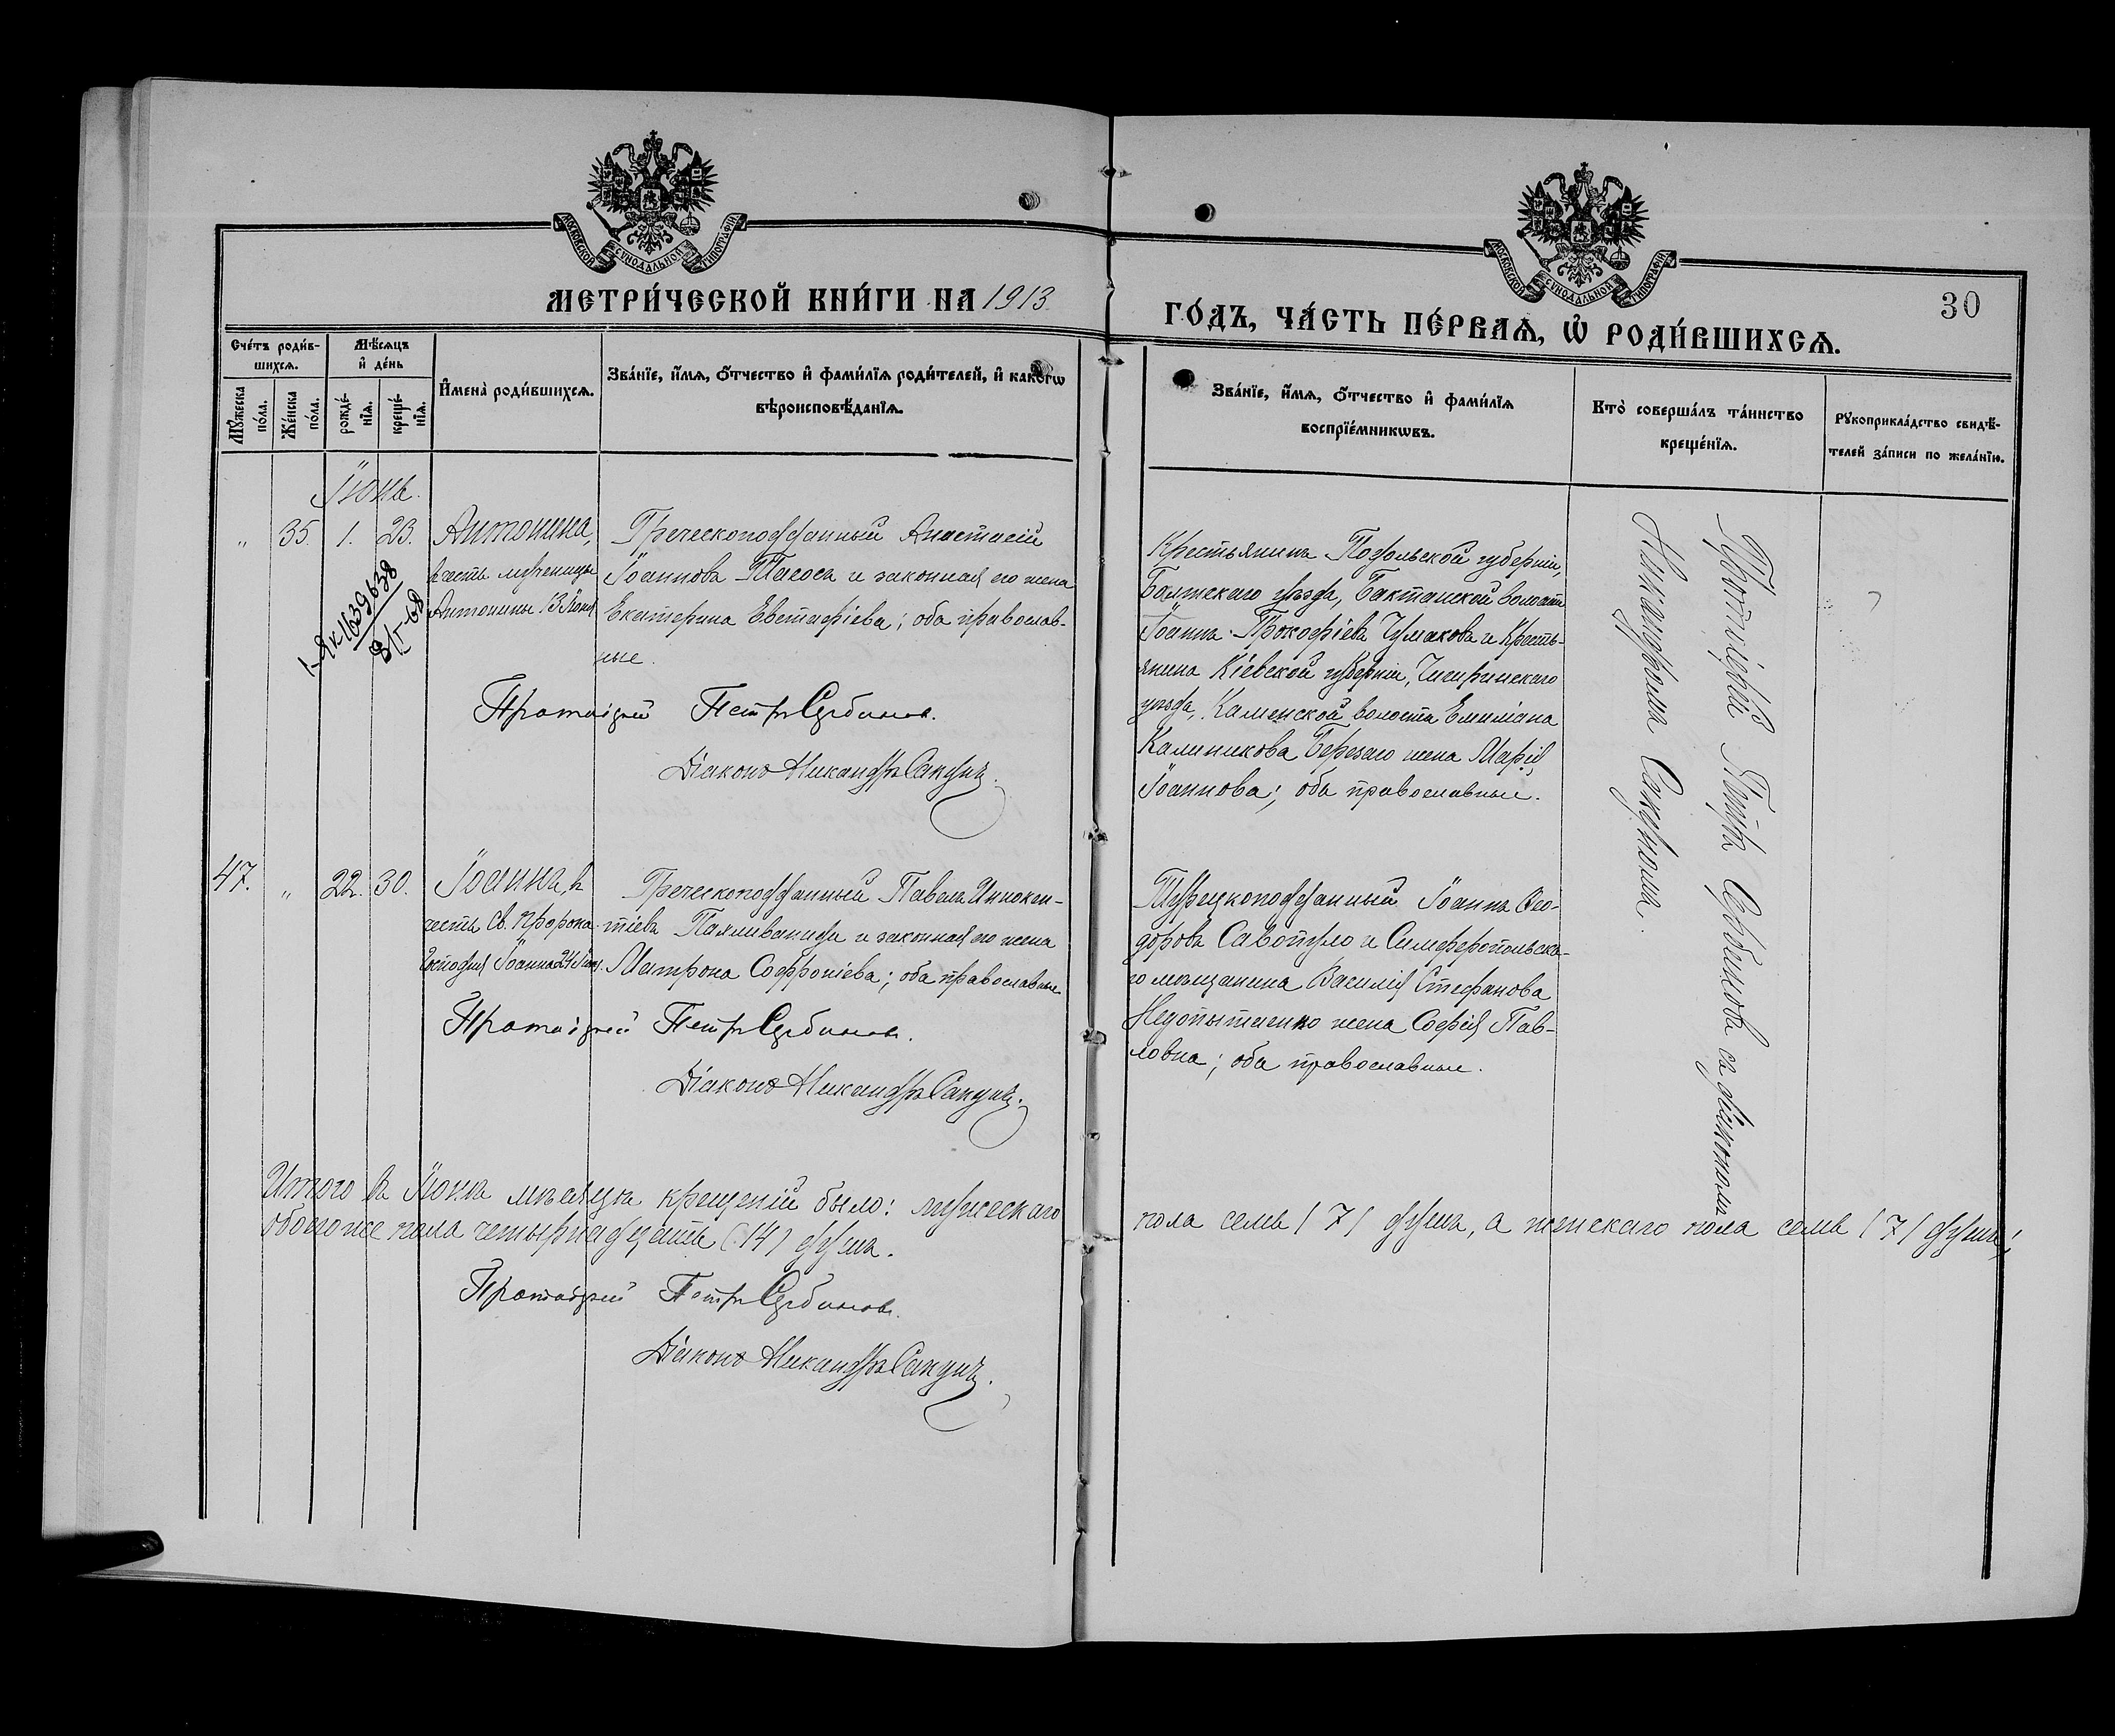 МОСКОВСКОЙ СѴНОДАЛЬНОЙ ТИПОГРАФІИ
МОСКОВСКОЙ СѴНОДАЛЬНОЙ ТИПОГРАФІИ
МЕТРИ́ЧЕСКОЙ КНИ́ГИ НА 1913
ГО́ДЪ, ЧА́СТЬ ПЕ́РВАѦ, Ѡ҆ РОДИ́ВШИХСѦ.
30
Сче́тъ роди́в-
шихсѧ.
Мѣ́сѧцъ
и҆ де́нь
Мꙋ́жеска по́ла.
Же́нска по́ла.
рожде́-
нїѧ.
креще́-
нїѧ.
И҆мена̀ роди́вшихсѧ.
Зва́нїе, и҆́мѧ, ѻ҆́тчество и҆ фами́лїѧ роди́телей, и҆ како́гѡ
вѣроисповѣ́данїѧ.
Зва́нїе, и҆́мѧ, ѻ҆́тчество и҆ фами́лїѧ
воспрїе́мникѡвъ.
Кто̀ соверша́лъ та́инство
креще́нїѧ.
Рꙋкоприкла́дство свидѣ́-
телей за́писи по жела́нїю.
Іюнь.
" 35. 1. 23. Антонина,
в честь мученицы
Антонины 13 Іюня
1-Як 1639638
Греческоподданный Анастасій
Іоанновъ Тасосъ и законная его жена
Екатерина Евстафіева; оба православ-
ные.
Протоіерей Петръ Сербиновъ.
Діаконъ Никандръ Сакунъ.
Крестьянинъ Подольской губерніи,
Балтскаго уѣзда, Бакшанской волости
Іоаннъ Прокофіевъ Чумаковъ и Кресть-
янина Кіевской губерніи, Чигиринскаго
уѣзда, Каменской волости Емиліана
Калиникова Березаго жена Марія
Іоаннова; оба православные.
Протоіерей Петръ Сербиновъ съ діакономъ
Никандромъ Сакуномъ.
47. " 22. 30. Іоаннъ, въ
честь Св. Пророка
Господня Іоанна 24 Іюня.
Греческоподданный Павелъ Иннокен-
тіевъ Пахливаниди и законная его жена
Матрона Софроніева; оба православные
Протоіерей Петръ Сербиновъ.
Діаконъ Никандръ Сакунъ.
Турецкоподданный Іоаннъ Ѳео-
доровъ Савопуло и Симферопольска-
го мѣщанина Василія Стефанова
Недопытченко жена Софія Пав-
ловна; оба православные.
Итого въ Іюнѣ мѣсяцѣ крещеній было: мужескаго
пола семь (7) душъ, а женскаго пола семь (7) душъ,
обоего же пола четырнадцать (14) душъ.
Протоіерей Петръ Сербиновъ.
Діаконъ Никандръ Сакунъ.